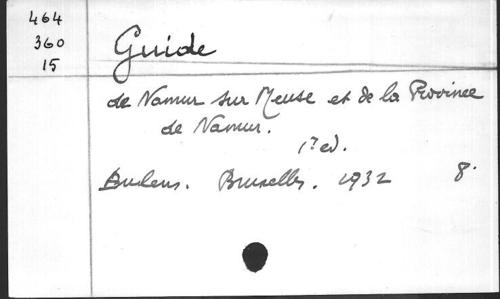 464
360
15
Guide
de Namur sur Meuse et de la Province
de Namur.
1? ed.
Bruxelles. 1932 8.